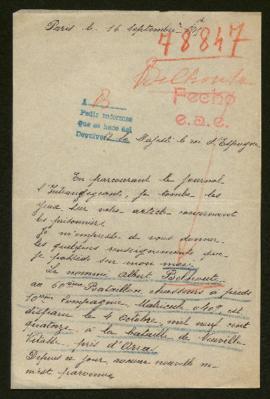 Paris le 16 septembre
78847
A B
Pedir informes
que se hace del
Devuélvase
Fecho
c.a.e.
sa Majesté le roi d'Espagne
En parcourant le journal
l'Intransigeant, je tombe les
yeux sur votre article concernant
les prisonniers.
Je m'empresse de vous donner
les quelques renseignements que
je possède sur mon mari
Le nommé Albert
au 60ème Bataillon chasseurs à pieds
10ème Compagnie Matricule
disparu le 4 Octobre, mil neuf cent
quatorze à la bataille de Neuville
Vitasse près d'Arras
Depuis ce jour aucune nouvelle ne
m'est parvenue